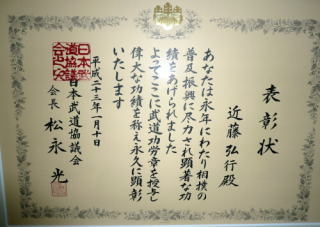 表彰状
近藤弘行殿
あなたは永年にわたり相撲の
普及振興に尽力され顕著な功
績をあげられました
よってここに武道功労章を授与し
偉大な功績を称え永久に顕彰
いたします
平成二十三年一月十日
日本武道協議会
会長 松永光
日本武
道協議
会印